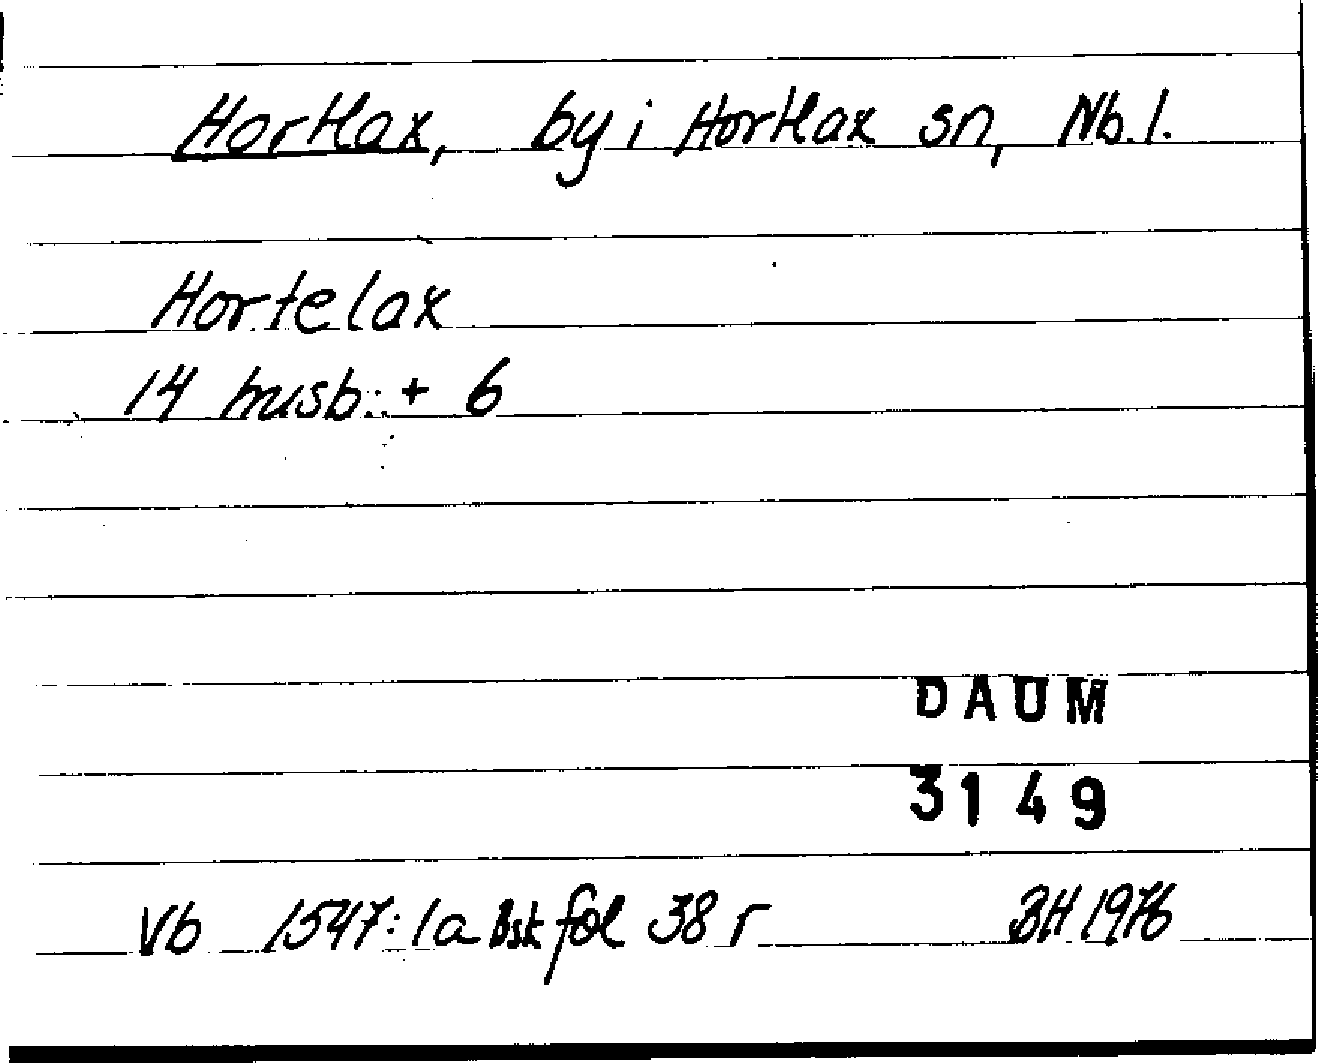 Hortlax, by i Hortlax sn, Nb. l.
Hortelax
14 husb: + 6
DAUM
3149
Vb 1547: 1a bsk fol 38 r BH 1976